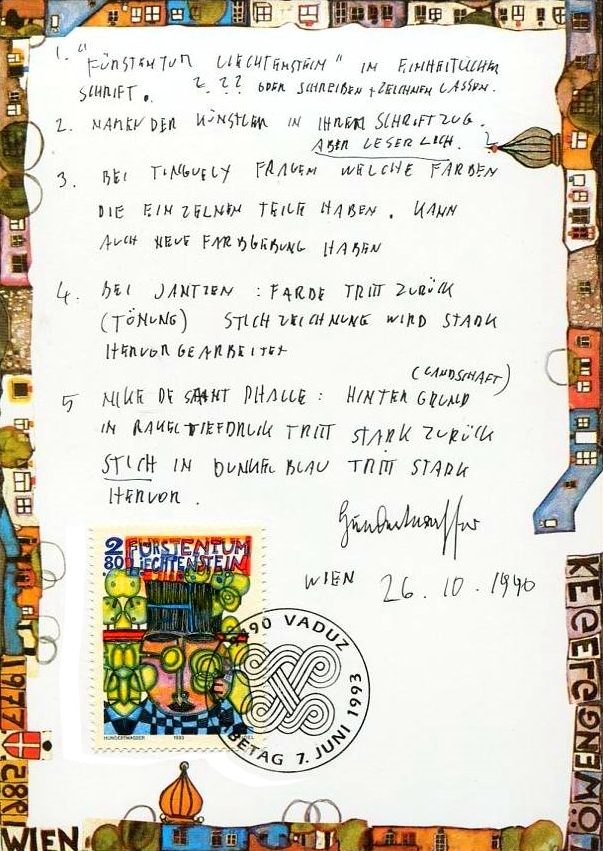 1. "FÜRSTENTUM LIECHTENSTEIN" IN EINHEITLICHER
SCHRIFT. ? ?? ODER SCHREIBEN + ZEICHNEN LASSEN.
2. NAMEN DER KÜNSTLER IN IHREM SCHRIFTZUG.
ABER LESERLICH.
3. BEI TINGUELY FRAGEN WELCHE FARBEN
DIE EINZELNEN TEILE HABEN. KANN
AUCH NEUE FARBGEBUNG HABEN
4. BEI JANTZEN : FARBE TRITT ZURÜCK
(TÖNUNG) STICHZEICHNUNG WIRD STARK
HERVORGEARBEITET
(LANDSCHAFT)
5 NIKE DE SAINT PHALLE : HINTERGRUND
IN RAKELTIEFDRUCK TRITT STARK ZURÜCK
STICH IN DUNKELBLAU TRITT STARK
HERVOR.
Hundertwasser
WIEN 26.10.1990
2
80
FÜRSTENTUM
LIECHTENSTEIN
HUNDERTWASSER 1993
9490 VADUZ
7. JUNI 1993
KEGELGONEMÖ
1977
1982
WIEN